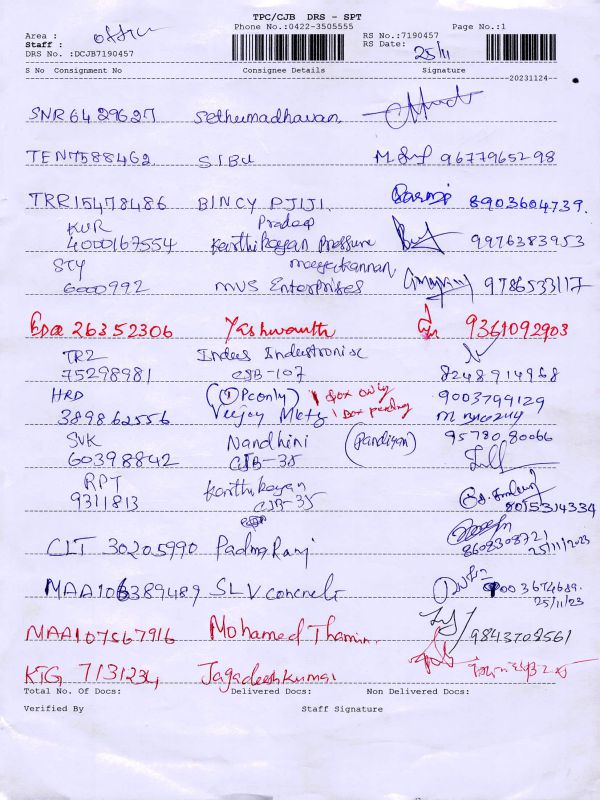 TPC/CJB DRS - SPT
Phone No.:0422-3505555 Page No.:1
Area : office RS No.:7190457
Staff : RS Date: 25/11
DRS No. :DCJB7190457
S No Consignment No Consignee Details Signature
20231124
SNR 6429627 Sethumadhavan
TEN7588462 SIBU 9677965298
TRR15478486 BINCY P JIJI. 8903604739.
KUR Pradeep
4000167554 Karthikeyan Pressure 9976383953
STY
6000992 MVS Enterprises 9786533117
26352306 Yashwanth 9361092903
TRZ Indus Industronise
75298981 CJB-107 8248914968
HRD (1 Pc only) 1 Box only 9003799129
389862556 Veejay Mktg 1 Box pending
SVK Nandhini (Pandiyan) 95780 80066
60398842 CJB-35
RPT Karthikeyan
9311813 CJB-35 8015314334
CLT 30205990 Padma Ranj 8608308721
25/11/2023
MAA106389489 SLV concrete
25/11/23
MAA107567916 Mohamed Thamim. 9843708561
KTG 7131234 Jagadeeshkumar
Total No. Of Docs: Delivered Docs: Non Delivered Docs:
Verified By Staff Signature